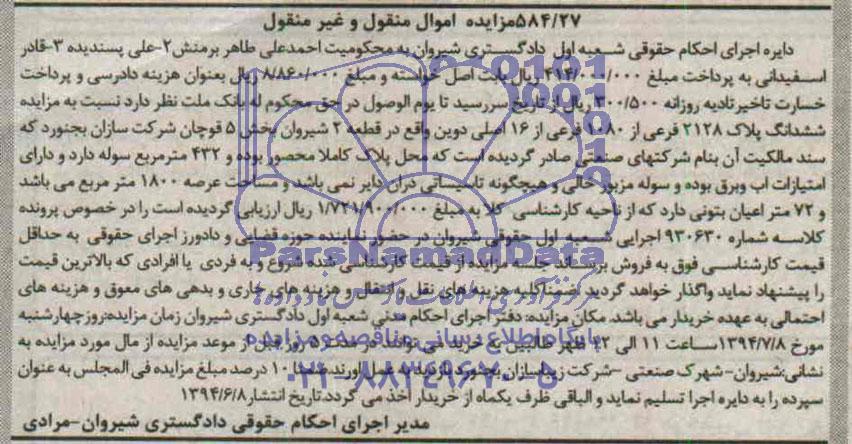 ۵۸۴/۲۷مزایده اموال منقول و غیر منقول
دایره اجرای احکام حقوقی شعبه اول دادگستری شیروان به محکومیت احمدعلی طاهر برمنش۲-علی پسندیده ۳-قادر
اسفیدانی به پرداخت مبلغ ۴۱۴/۰۰۰/۰۰۰ ریال بابت اصل خواسته و مبلغ ۸/۸۶۰/۰۰۰ ریال بعنوان هزینه دادرسی و پرداخت
خسارت تاخیرتادیه روزانه ۳۰۰/۵۰۰ ریال از تاریخ سررسید تا یوم الوصول در حق محکوم له بانک ملت نظر دارد نسبت به مزایده
ششدانگ پلاک ۲۱۲۸ فرعی از ۱۰۸۰ فرعی از ۱۶ اصلی دوین واقع در قطعه ۲ شیروان بخش ۵ قوچان شرکت سازان بجنورد که
سند مالکیت آن بنام شرکتهای صنعتی صادر گردیده است که محل پلاک کاملا محصور بوده و ۴۳۲ مترمربع سوله دارد و دارای
امتیازات اب وبرق بوده و سوله مزبور خالی و هیچگونه تاسیساتی دران دایر نمی باشد و مساحت عرصه ۱۸۰۰ متر مربع می باشد
و ۷۲ متر اعیان بتونی دارد که از ناحیه کارشناسی کلا به مبلغ ۱/۷۲۱/۹۰۰/۰۰۰ ریال ارزیابی گردیده است را در خصوص پرونده
کلاسه شماره ۹۳۰۶۳۰ اجرایی شعبه اول حقوقی شیروان در حضور نماینده حوزه قضایی و دادورز اجرای حقوقی به حداقل
قیمت کارشناسی فوق به فروش برساند جلسه مزایده از قیمت کارشناسی شده شروع و به فردی یا افرادی که بالاترین قیمت
را پیشنهاد نماید واگذار خواهد گردید ضمنا کلیه هزینه های نقل و انتقال و هزینه های جاری و بدهی های معوق و هزینه های
احتمالی به عهده خریدار می باشد. مکان مزایده: دفتر اجرای احکام مدنی شعبه اول دادگستری شیروان زمان مزایده:روز چهارشنبه
مورخ ۱۳۹۴/۷/۸ساعت ۱۱ الی ۱۲ ظهر طالبین به خرید می توانند در مدت ۵ روز قبل از موعد مزایده از مال مورد مزایده به
نشانی:شیروان-شهرک صنعتی -شرکت زیباسازان بجنورد بازدید به عمل اورند ضمنا ۱۰ درصد مبلغ مزایده فی المجلس به عنوان
سپرده را به دایره اجرا تسلیم نماید و الباقی ظرف یکماه از خریدار أخذ می گردد.تاریخ انتشار:۱۳۹۴/۶/۸
مدیر اجرای احکام حقوقی دادگستری شیروان-مرادی
ParsNamadData
پایگاه اطلاع رسانی مناقصه و مزایده
۰۲۱-۸۸۳۴۹۶۷۰-۵